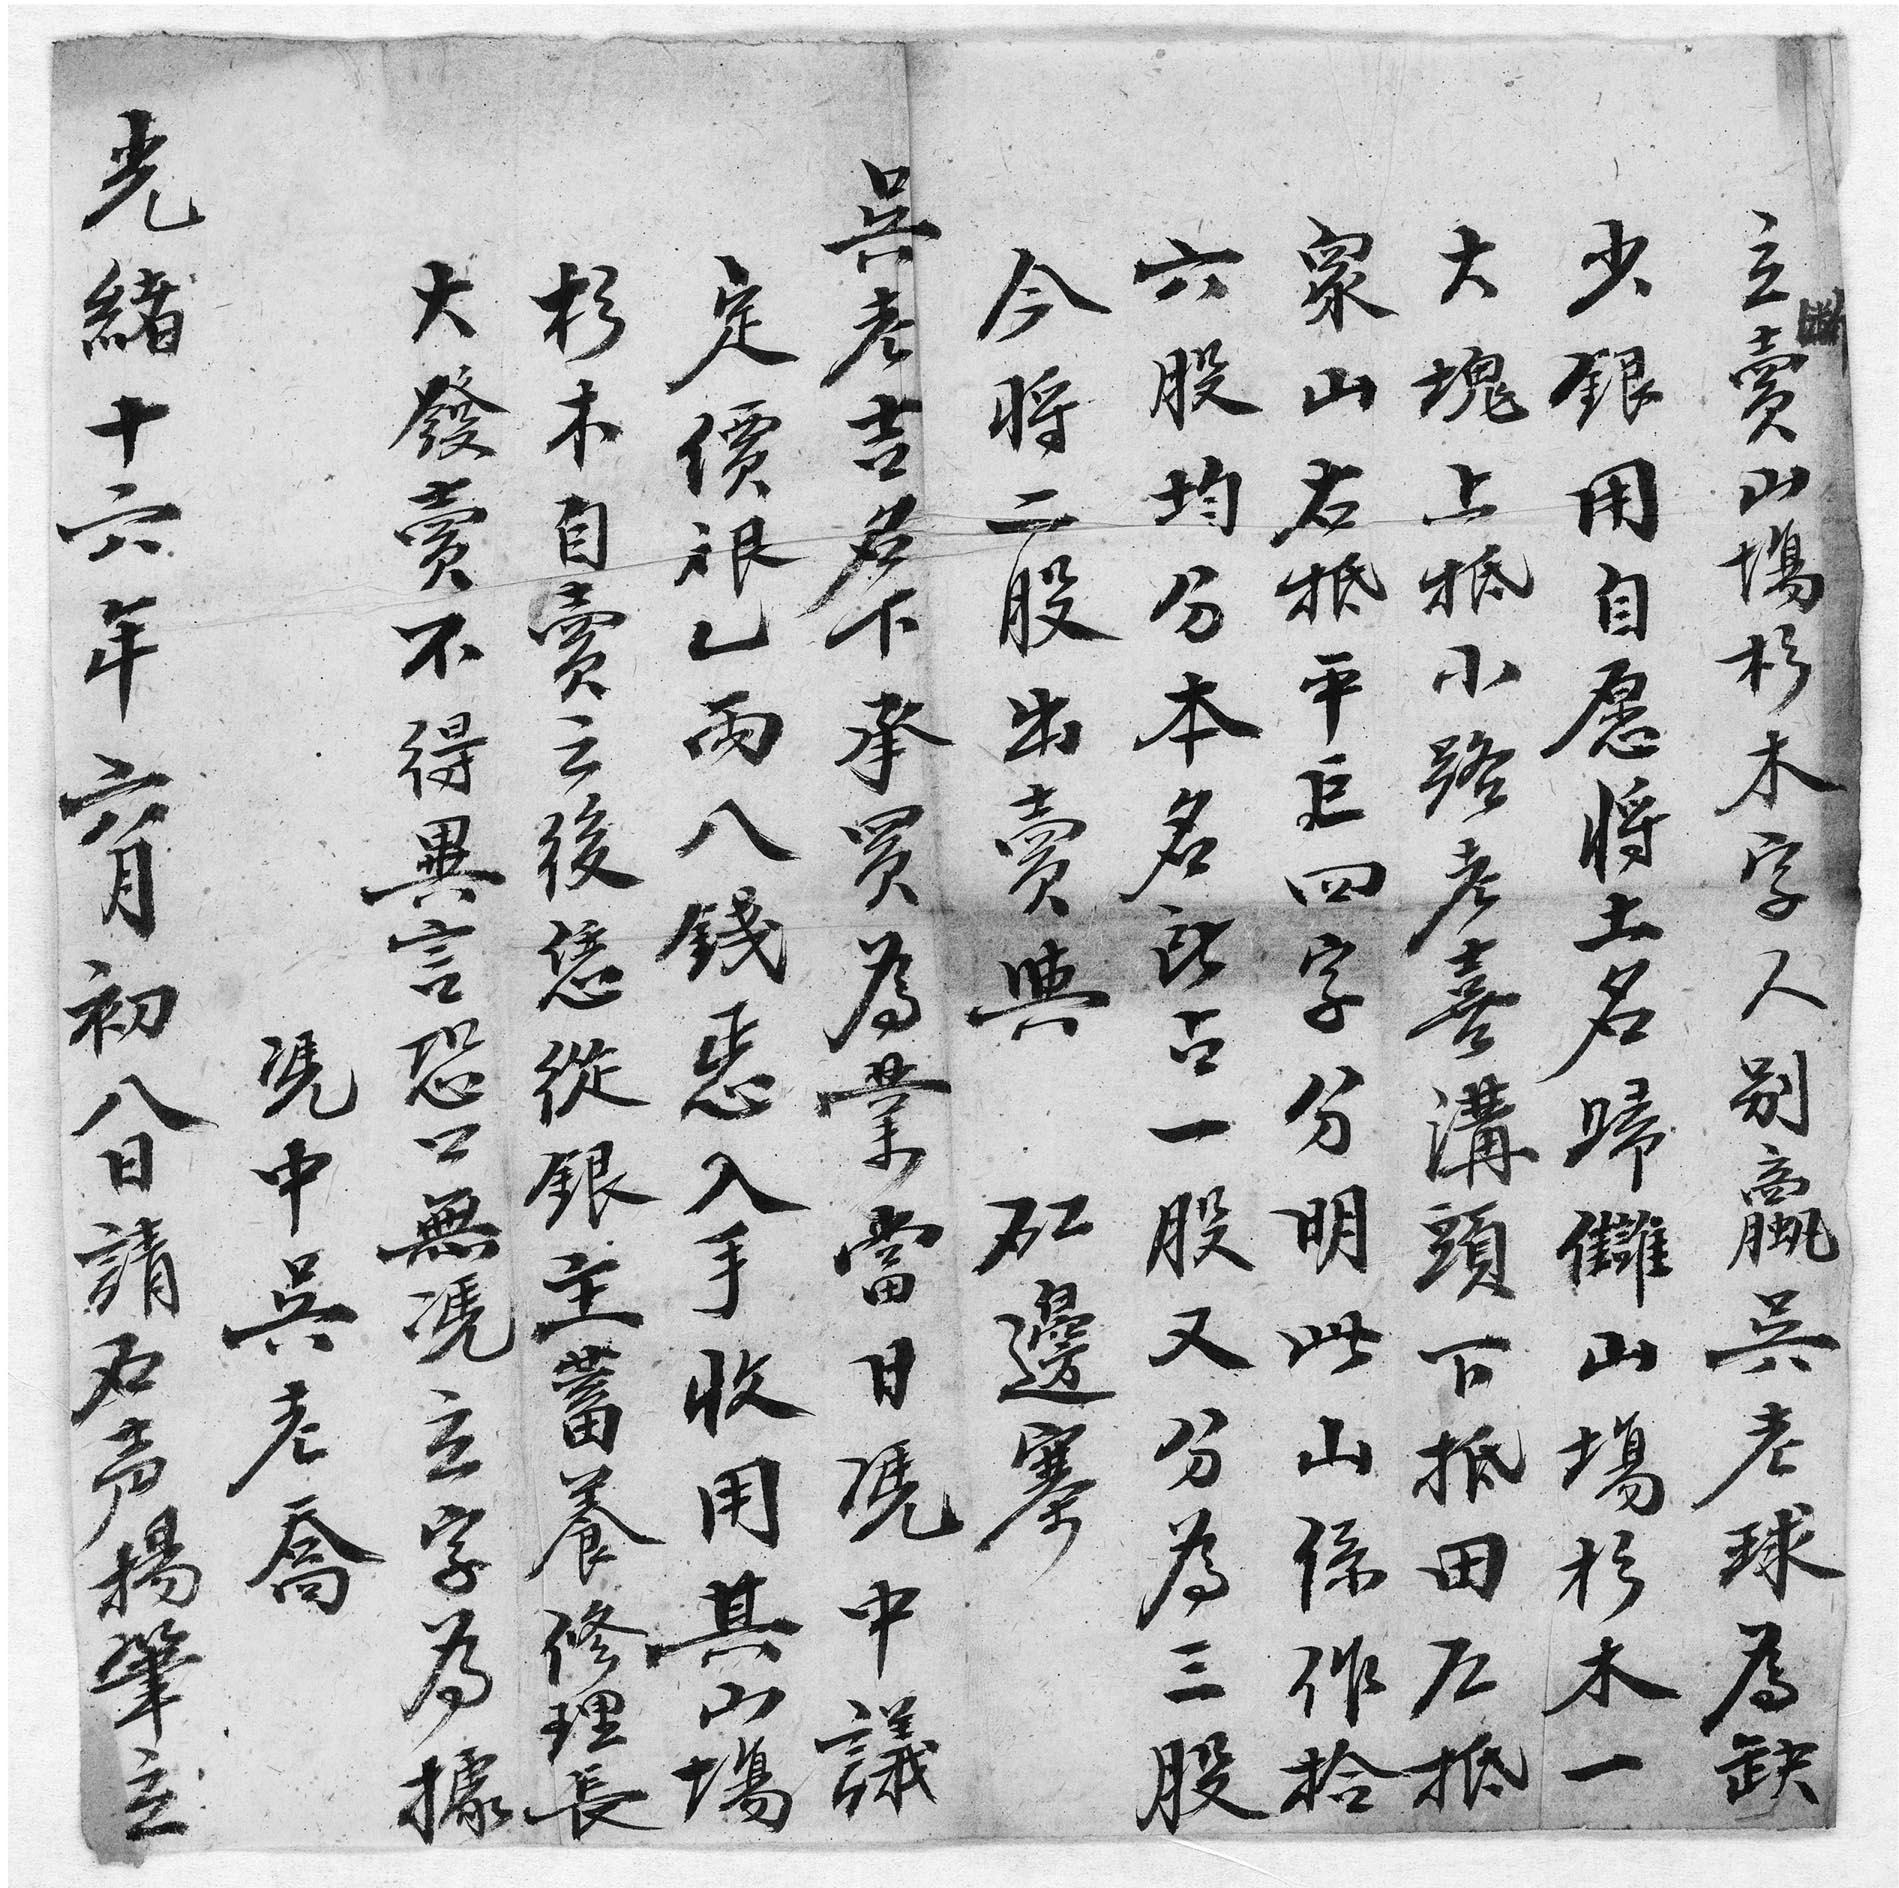 立賣山塲杉木字人别羸吳老球為缺
少銀用自愿将土名歸讎山塲杉木一
大塊上抵小路老喜溝頭下抵田左抵
眾山右抵平丘四字分明此山係作拾
六股均分本名所占一股又分為三股
今将二股出賣與 矼邊寨
吳老吉名下承買為業當日凴中議
定價艮乚両八錢悉入手收用其山塲
杉木自賣之後恁從銀主蓄養修理長
大發賣不得異言恐口無凴立字為據
凴中吳老喬
光緒十六年六月初八日請石声揚筆立